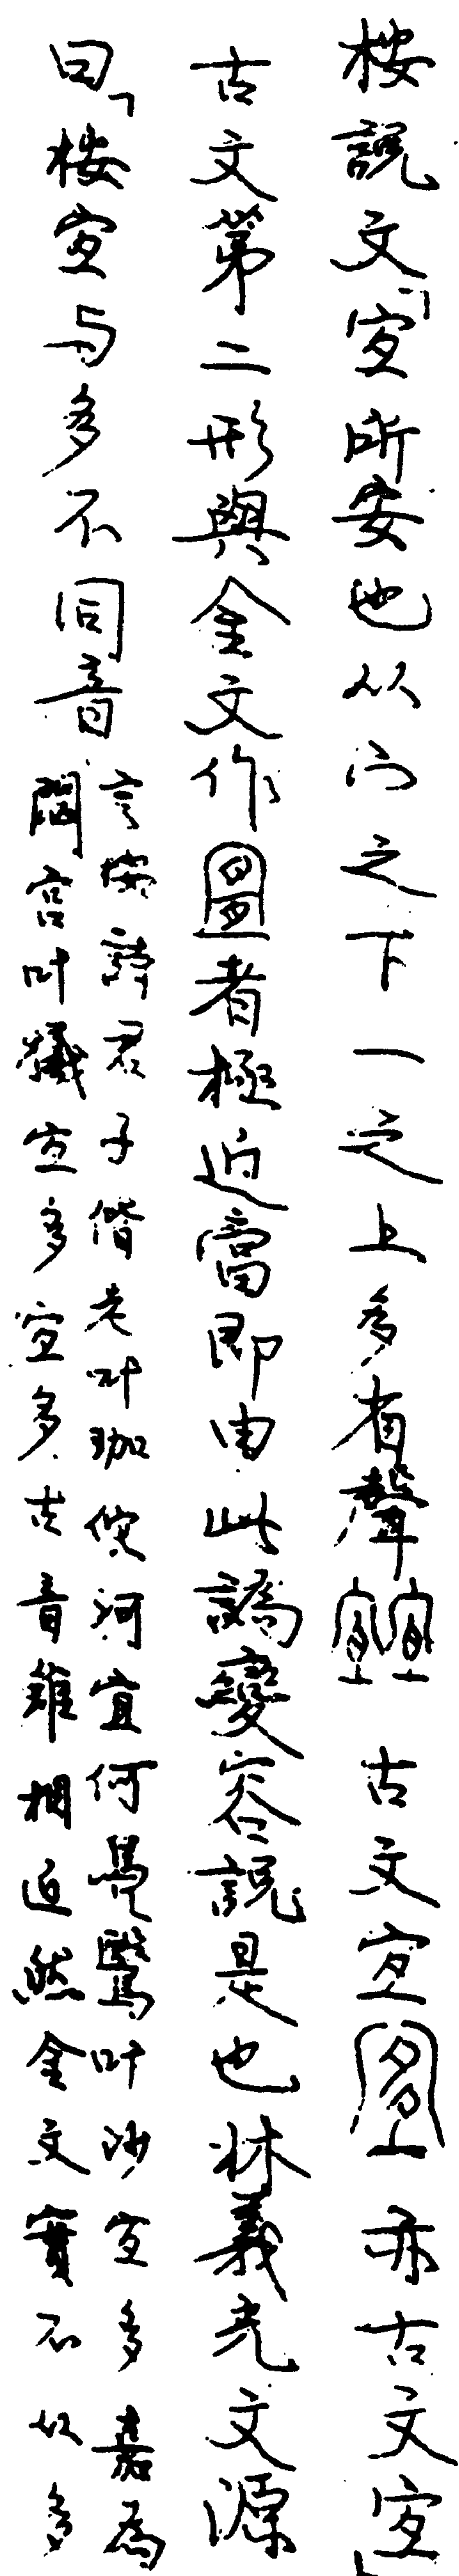 按說文「宜所安也从宀之下一之上多省聲 古文宜 亦古文宜」
古文第二形與金文作者極近當即由此譌變容說是也林義光文源
曰「按宜与多不同音
言按詩君子偕老叶珈佗河宜何鳧鷖叶沙宜多嘉為
閟宮叶犧宜多宜多古音雖相近然金文實不从多